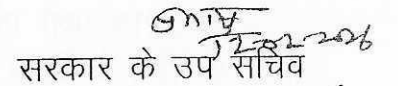 12-02-2026
सरकार के उप सचिव